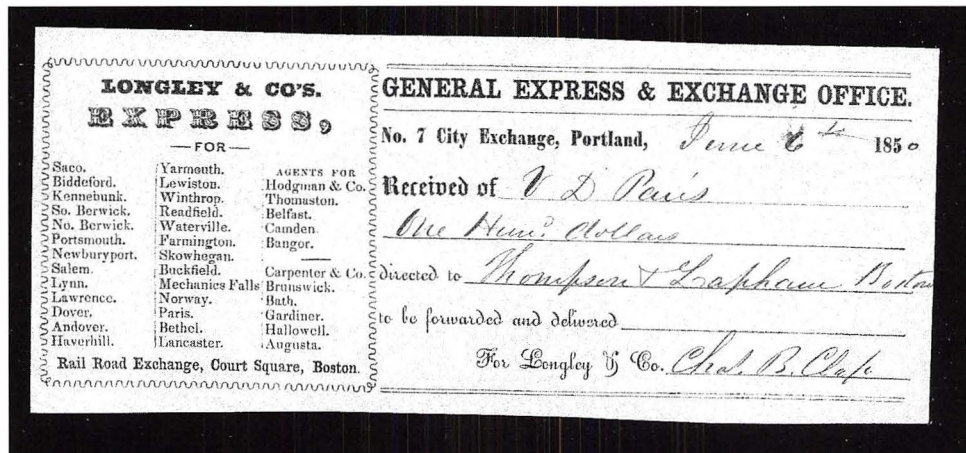 LONGLEY & CO'S.
EXPRESS,
—FOR—
Saco.
Biddeford.
Kennebunk.
So. Berwick.
No. Berwick.
Portsmouth.
Newburyport.
Salem.
Lynn.
Lawrence.
Dover.
Andover.
Haverhill.
Yarmouth.
Lewiston.
Winthrop.
Readfield.
Waterville.
Farmington.
Skowhegan.
Buckfield.
Mechanics Falls
Norway.
Paris.
Bethel.
Lancaster.
AGENTS FOR
Hodgman & Co.
Thomaston.
Belfast.
Camden.
Bangor.
Carpenter & Co.
Brunswick.
Bath.
Gardiner.
Hallowell.
Augusta.
Rail Road Exchange, Court Square, Boston.
GENERAL EXPRESS & EXCHANGE OFFICE.
No. 7 City Exchange, Portland, June 6th 1850
Received of V D Paris
One Hund. dollars
directed to Thompson & Lapham Boston
to be forwarded and delivered
For Longley & Co. Chas. B. Clap